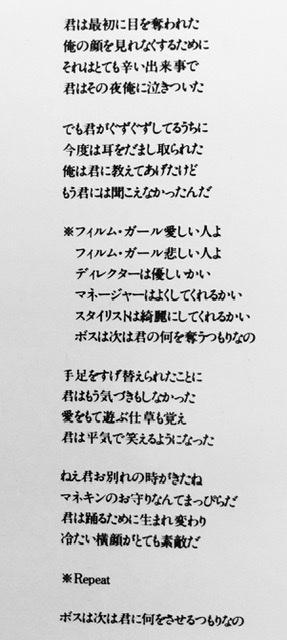 君は最初に目を奪われた
俺の顔を見れなくするために
それはとても辛い出来事で
君はその夜俺に泣きついた
でも君がぐずぐずしてるうちに
今度は耳をだまし取られた
俺は君に教えてあげたけど
もう君には聞こえなかったんだ
※フィルム・ガール愛しい人よ
フィルム・ガール悲しい人よ
ディレクターは優しいかい
マネージャーはよくしてくれるかい
スタイリストは綺麗にしてくれるかい
ボスは次は君の何を奪うつもりなの
手足をすげ替えられたことに
君はもう気づきもしなかった
愛をもて遊ぶ仕草も覚え
君は平気で笑えるようになった
ねえ君お別れの時がきたね
マネキンのお守りなんてまっぴらだ
君は踊るために生まれ変わり
冷たい横顔がとても素敵だ
※Repeat
ボスは次は君に何をさせるつもりなの